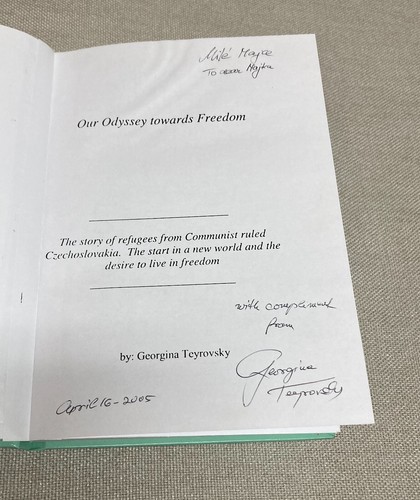 Milé Majce
To
Our Odyssey towards Freedom
The story of refugees from Communist ruled
Czechoslovakia. The start in a new world and the
desire to live in freedom
with compliment
from
by: Georgina Teyrovsky
Georgina
Teyrovsky
April 16-2005